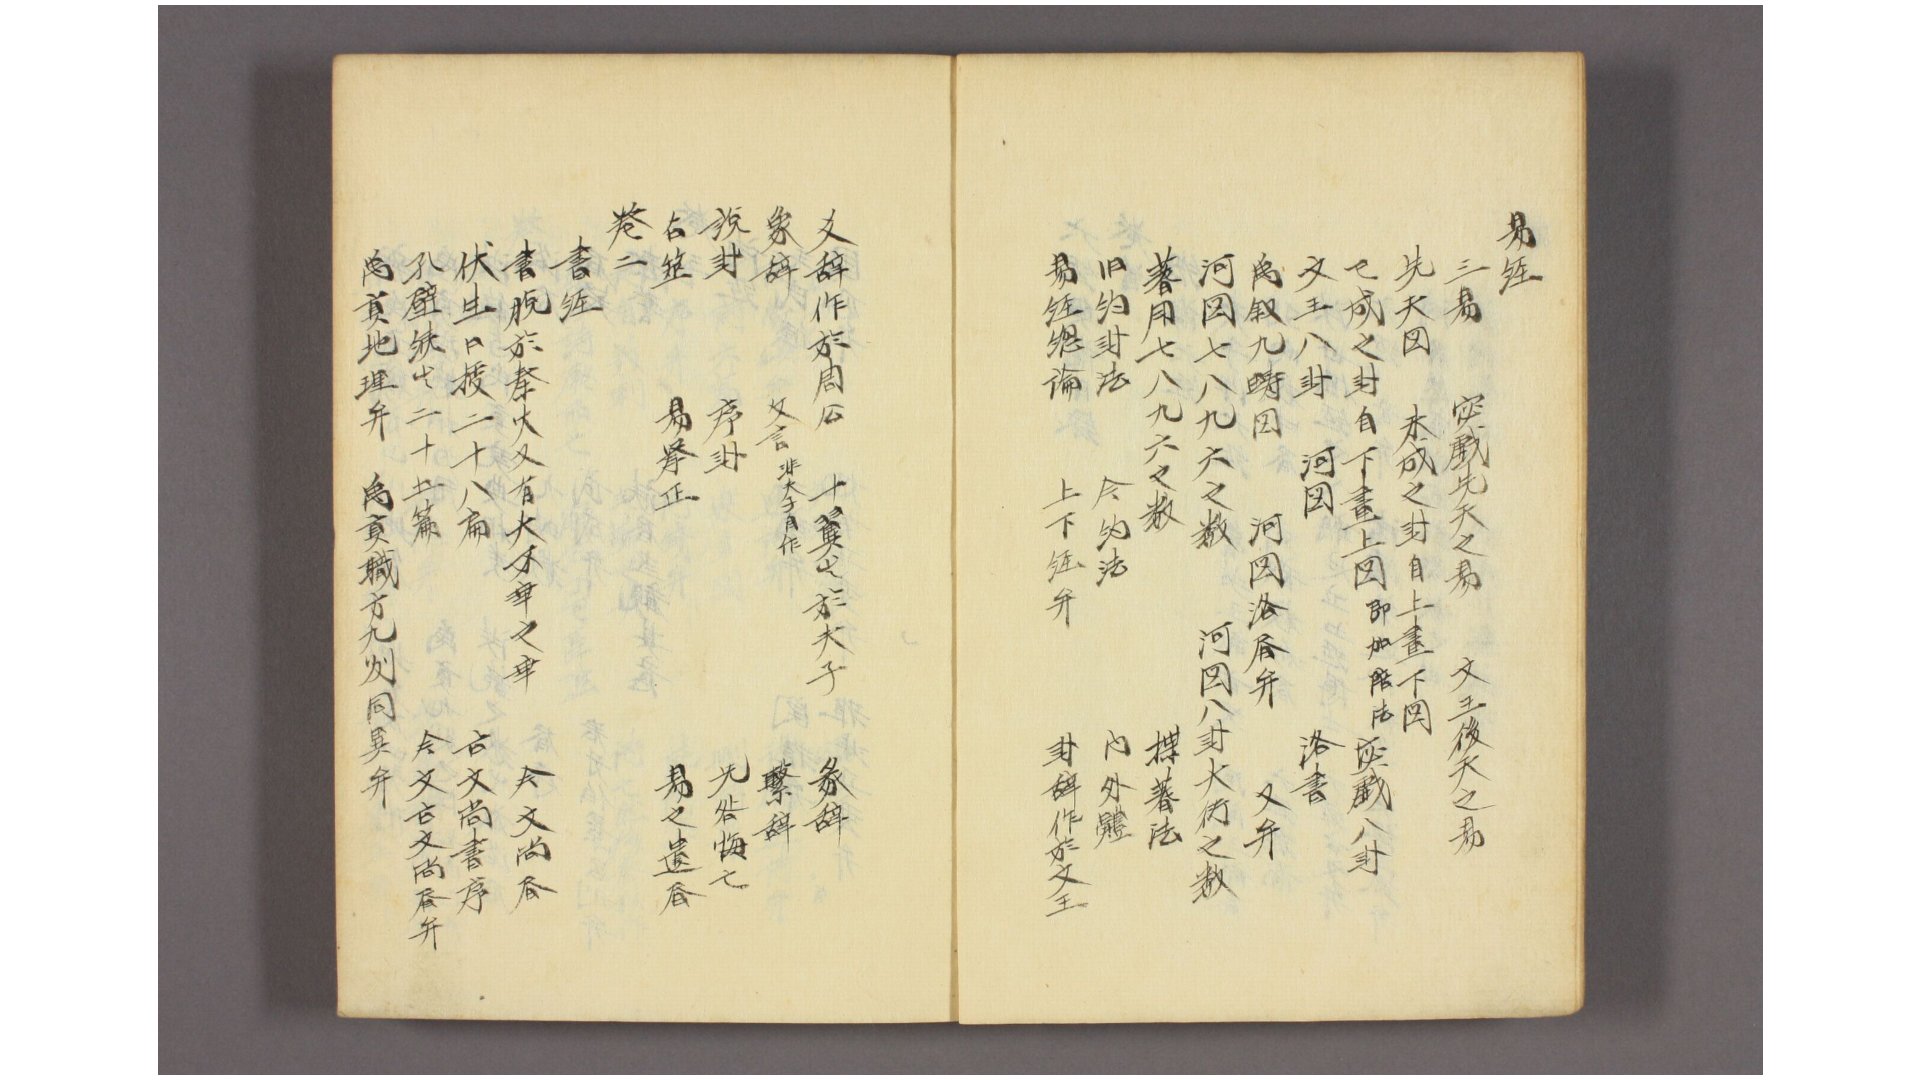 易経
三易　宓戯先天之易　文王後天之易
先天図　未成之卦自上畫下図
已成之卦自下畫上図 即加陪法　宓戯八卦
文王八卦　河図　洛書
禹叙九疇図　河図洛书弁　又弁
河図七八九六之数　河図八卦大衍之数
蓍用七八九六之数　揲蓍法
旧約卦法　今約法　内外體
易経総論　上下経弁　卦辞作於文王
爻辞作於周公　十翼出於夫子　彖辞
象辞　文言 非夫子自作　繋辞
説卦　序卦　无咎悔亡
占筮　易挙正　易之遺书
巻二
書経
書脱於秦火又有大不幸之幸　今文尚书
伏生口授二十八扁　古文尚書序
孔壁続出二十五篇　今文古文尚书弁
禹貢地理弁　禹貢職方九州同異弁